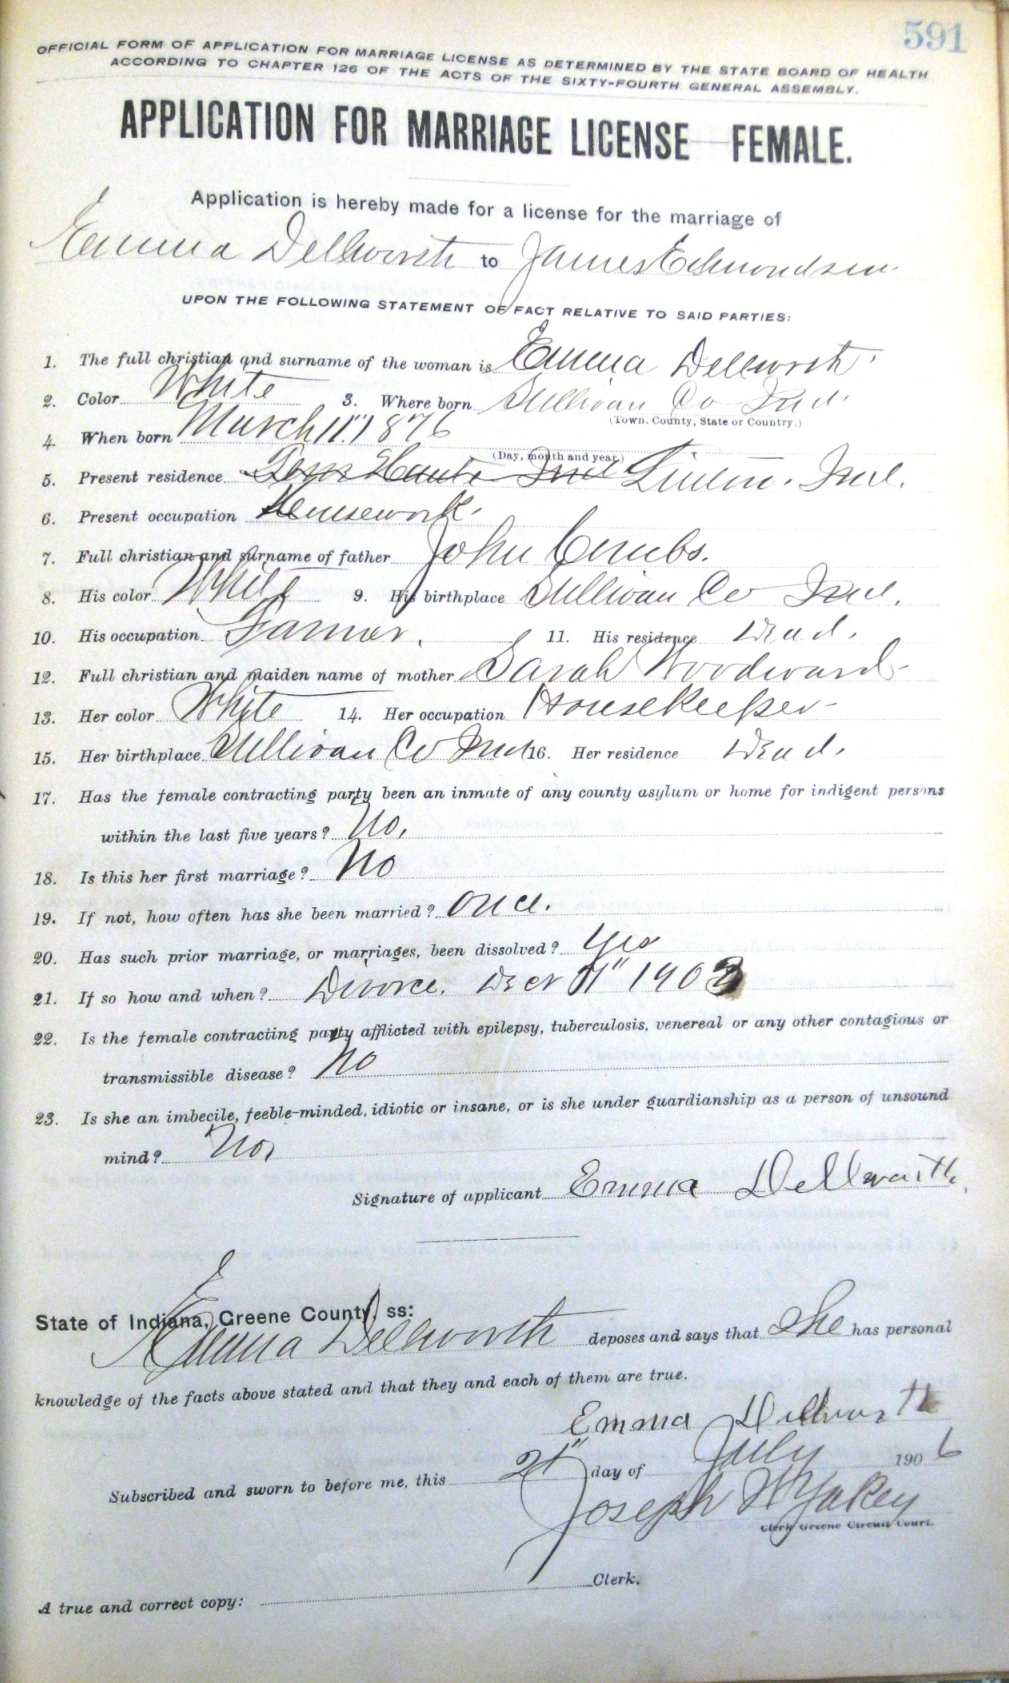 591
OFFICIAL FORM OF APPLICATION FOR MARRIAGE LICENSE AS DETERMINED BY THE STATE BOARD OF HEALTH
ACCORDING TO CHAPTER 126 OF THE ACTS OF THE SIXTY-FOURTH GENERAL ASSEMBLY.
APPLICATION FOR MARRIAGE LICENSE FEMALE.
Application is hereby made for a license for the marriage of
Emma Dellworth to James Edmondson.
UPON THE FOLLOWING STATEMENT OF FACT RELATIVE TO SAID PARTIES:
1. The full christian and surname of the woman is Emma Dellworth.
2. Color White 3. Where born Sullivan Co Ind.
(Town. County, State or Country.)
4. When born March 11" 1876
(Day, month and year.)
5. Present residence Terre Haute Ind Linton. Ind.
6. Present occupation Housework.
7. Full christian and surname of father John Combs.
8. His color White 9. His birthplace Sullivan Co Ind.
10. His occupation Farmer. 11. His residence Dead.
12. Full christian and maiden name of mother Sarah Woodward
13. Her color White 14. Her occupation Housekeeper
15. Her birthplace Sullivan Co Ind 16. Her residence Dead.
17. Has the female contracting party been an inmate of any county asylum or home for indigent persons
within the last five years? No.
18. Is this her first marriage? No
19. If not, how often has she been married? Once.
20. Has such prior marriage, or marriages, been dissolved? Yes
21. If so how and when? Divorce. Dec 11" 1903
22. Is the female contracting party afflicted with epilepsy, tuberculosis, venereal or any other contagious or
transmissible disease? No
23. Is she an imbecile, feeble-minded, idiotic or insane, or is she under guardianship as a person of unsound
mind? No.
Signature of applicant Emma Dellwarth.
State of Indiana, Greene County, ss:
Emma Dellworth deposes and says that She has personal
knowledge of the facts above stated and that they and each of them are true.
Emma Dellworth
Subscribed and sworn to before me, this 21" day of July 1906
Joseph W Yakey
Clerk Greene Circuit Court.
Clerk.
A true and correct copy: